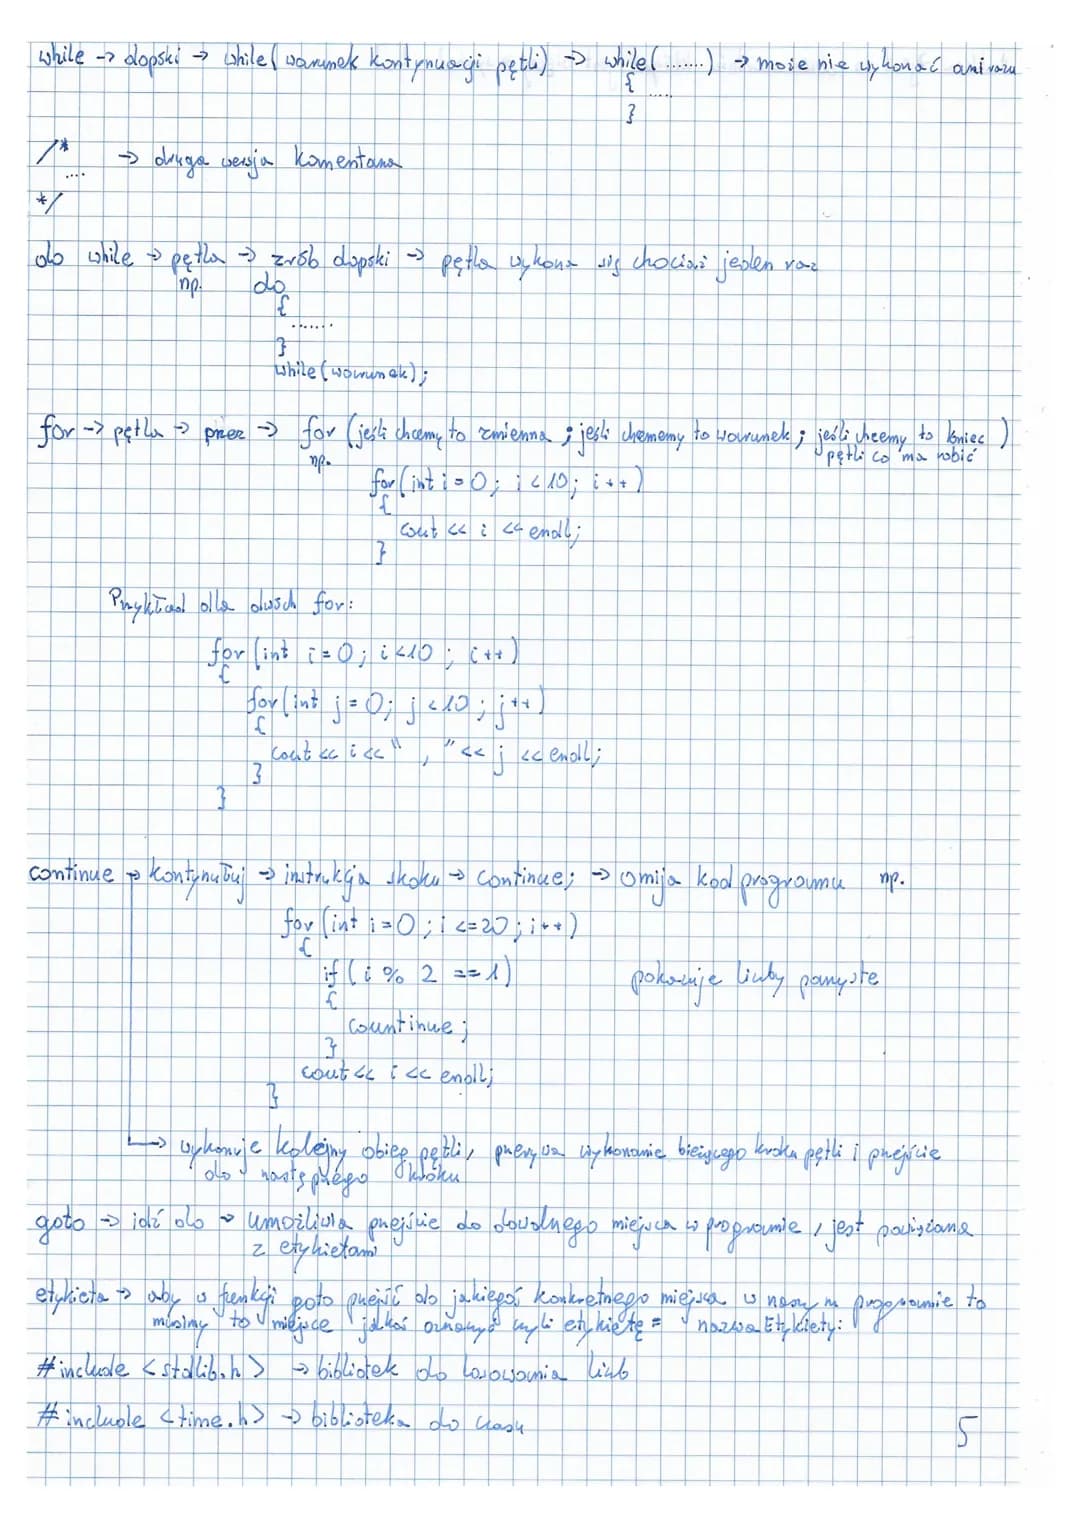 while -> dopóki -> while( warunek kontynuacji pętli) -> while(.......) -> może nie wykonać ani razu
{ ....
}
/* -> druga wersja komentarza
....
*/
do while -> pętla -> zrób dopóki -> pętla wykona się chociaż jeden raz
np. do
{
.......
}
while(warunek);
for -> pętla -> przez -> for (jeśli chcemy to zmienna ; jeśli chemy to warunek ; jeśli chcemy to koniec )
pętli co ma robić
np.
for(int i=0; i<10; i++)
{
cout << i << endl;
}
Przykład dla dwóch for:
for (int i=0; i<10 ; i++)
{
for(int j=0; j<10; j++)
{
cout << i << " , " << j << endl;
}
}
continue -> kontynuuj -> instrukcja skoku -> continue; -> omija kod programu np.
for (int i=0 ; i <=20 ; i++)
{
if ( i % 2 ==1) pokazuje liczby parzyste
{
countinue ;
}
cout << i << endl;
}
-> wykonuje kolejny obieg pętli, przerywa wykonanie bieżącego kroku pętli i przejście
do następnego kroku
goto -> idź do -> umożliwia przejście do dowolnego miejsca w programie , jest powiązana
z etykietami
etykieta -> aby w funkcji goto przejść do jakiegoś konkretnego miejsca w naszym programie to
musimy to miejsce jakoś oznaczyć czyli etykietę = nazwaEtykiety:
#include <stdlib.h> -> bibliotek do losowania liczb
#include <time.h> -> biblioteka do czasu
5